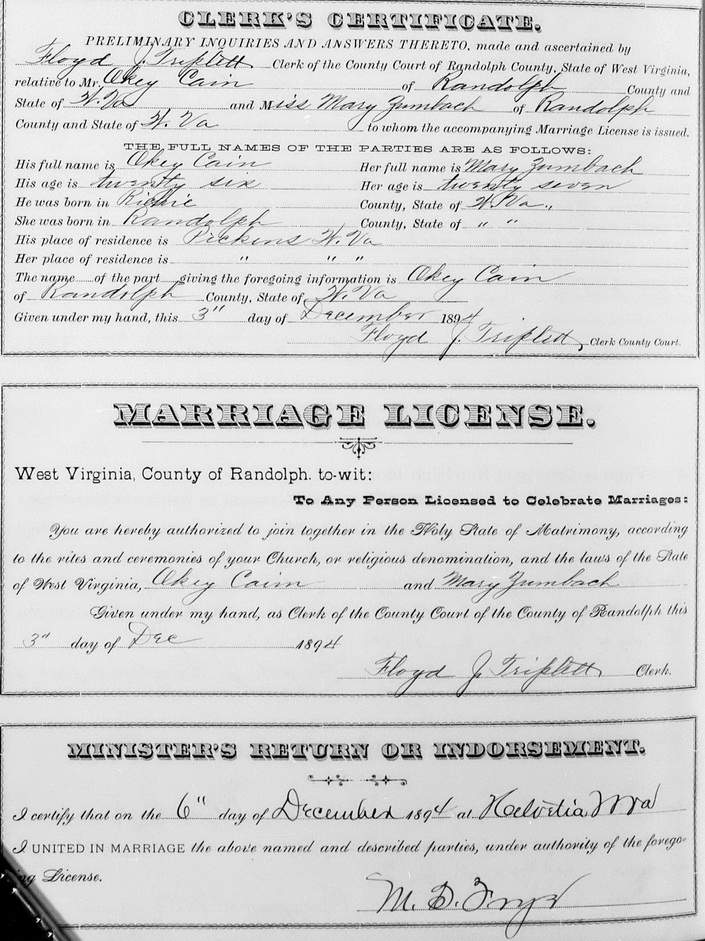 CLERK'S CERTIFICATE.
PRELIMINARY INQUIRIES AND ANSWERS THERETO, made and ascertained by
Floyd J. Triplett Clerk of the County Court of Randolph County, State of West Virginia,
relative to Mr. Okey Cain of Randolph County and
State of W. Va and Miss Mary Zumbach of Randolph
County and State of W. Va to whom the accompanying Marriage License is issued.
THE FULL NAMES OF THE PARTIES ARE AS FOLLOWS:
His full name is Okey Cain Her full name is Mary Zumbach
His age is twenty six Her age is twenty seven
He was born in Richie County, State of W. Va.,
She was born in Randolph County, State of " "
His place of residence is Pickens W. Va
Her place of residence is " " "
The name of the part giving the foregoing information is Okey Cain
of Randolph County, State of W. Va
Given under my hand, this 3" day of December 1894
Floyd J. Triplett, Clerk County Court.
MARRIAGE LICENSE.
West Virginia, County of Randolph. to-wit:
To Any Person Licensed to Celebrate Marriages:
You are hereby authorized to join together in the Holy State of Matrimony, according
to the rites and ceremonies of your Church, or religious denomination, and the laws of the State
of West Virginia, Okey Cain and Mary Zumbach
Given under my hand, as Clerk of the County Court of the County of Randolph this
3" day of Dec 1894
Floyd J. Triplett Clerk.
MINISTER'S RETURN OR INDORSEMENT.
I certify that on the 6" day of December 1894 at Helvetia W va
I UNITED IN MARRIAGE the above named and described parties, under authority of the forego-
ng License.
M. D.